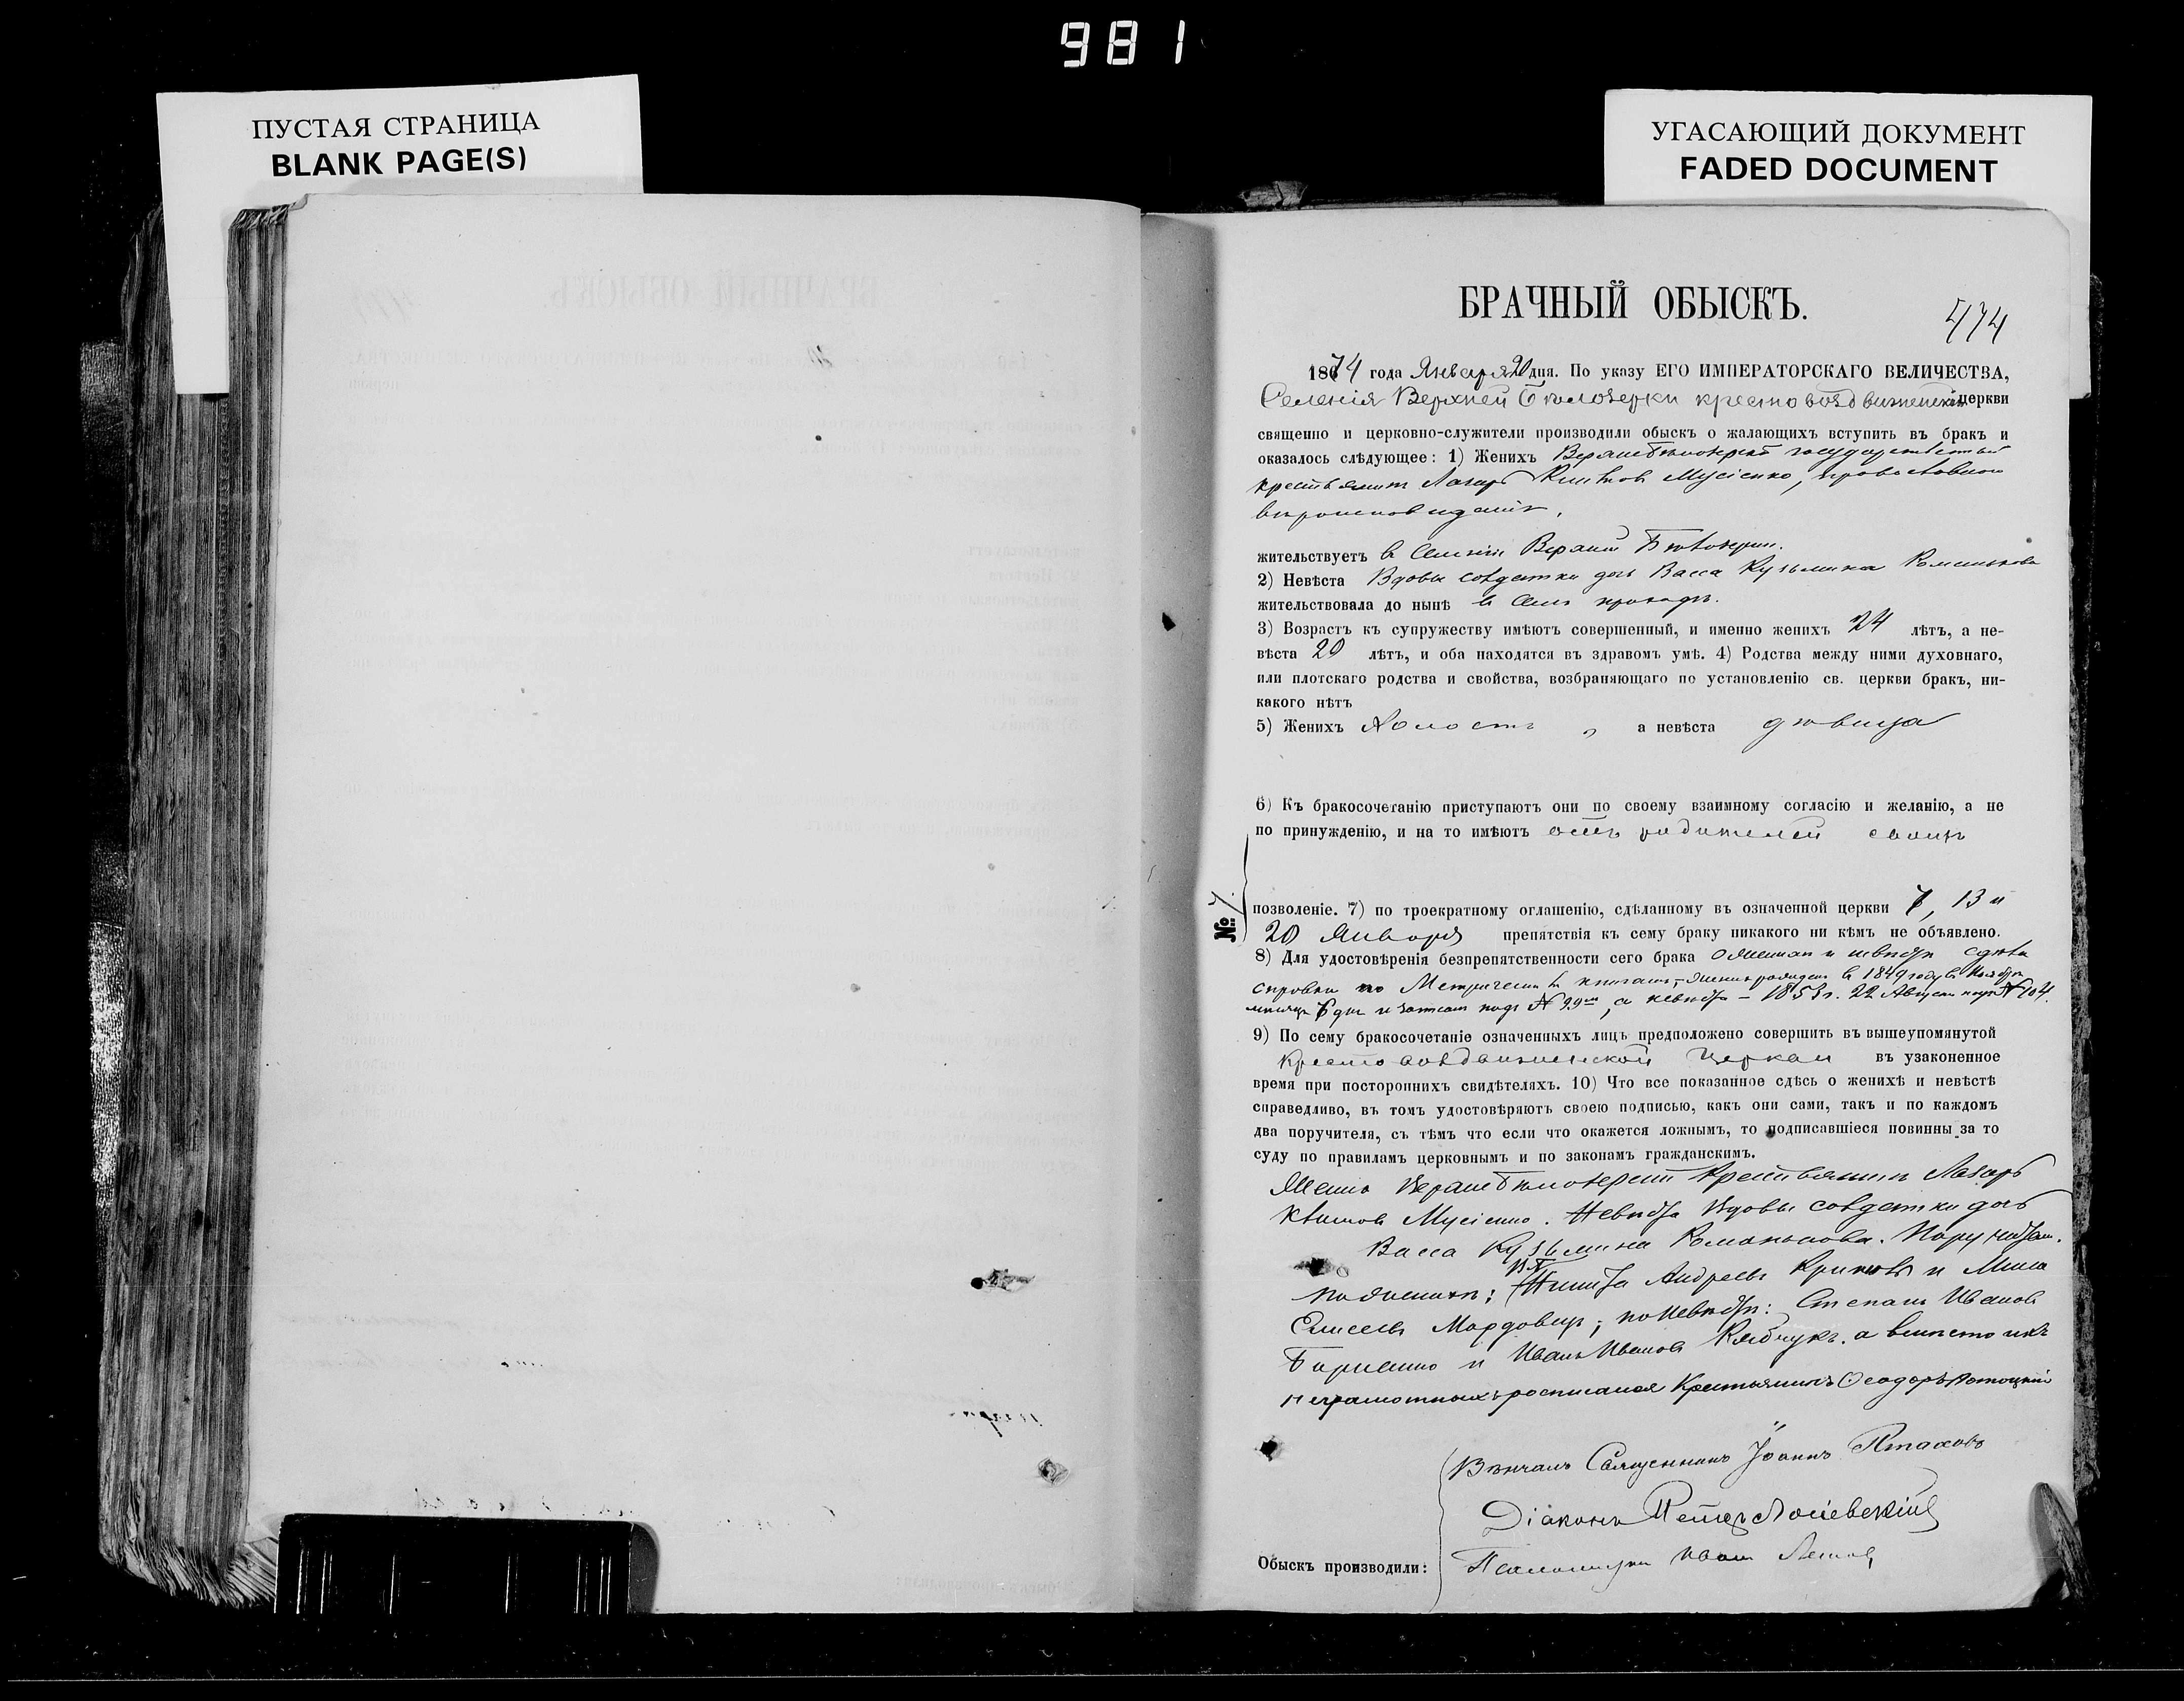 981
ПУСТАЯ СТРАНИЦА
BLANK PAGE(S)
УГАСАЮЩИЙ ДОКУМЕНТ
FADED DOCUMENT
БРАЧНЫЙ ОБЫСКЪ.
474
1874 года Января 20 дня. По указу ЕГО ИМПЕРАТОРСКАГО ВЕЛИЧЕСТВА,
Селенія Верхней Бѣлозерки крестовоздвиженской церкви
священно и церковно-служители производили обыскъ о жалающихъ вступить въ бракъ и
оказалось слѣдующее: 1) Женихъ Верхнебѣлозерскій государственный
крестьянинъ Лазарь Климовъ Мусіенко, православнаго
вѣроисповѣданія,
жительствуетъ въ Селеніи Верхней Бѣлозерки.
2) Невѣста Вдовы солдатки дочь Васса Кузьмина Романькова
жительствовала до нынѣ въ Селѣ
3) Возрастъ къ супружеству имѣютъ совершенный, и именно женихъ 24 лѣтъ, а не-
вѣста 20 лѣтъ, и оба находятся въ здравомъ умѣ. 4) Родства между ними духовнаго,
или плотскаго родства и свойства, возбраняющаго по установленію св. церкви бракъ, ни-
какого нѣтъ
5) Женихъ Холостъ, а невѣста дѣвица
6) Къ бракосочетанію приступаютъ они по своему взаимному согласію и желанію, а не
по принужденію, и на то имѣютъ отъ родителей своихъ
№ 7.
позволеніе. 7) по троекратному оглашенію, сдѣланному въ означенной церкви 6, 13 и
20 Января препятствія къ сему браку никакого ни кѣмъ не объявлено.
8) Для удостовѣренія безпрепятственности сего брака о женихѣ и невѣстѣ
справки по Метрическимъ книгамъ, женихъ родился въ 1849 году въ Ноября
мѣсяцѣ 6 дня и записанъ подъ № 99мъ, а невѣста – 1853 г. 22 Августа подъ № 104.
9) По сему бракосочетаніе означенныхъ лицъ предположено совершить въ вышеупомянутой
Крестовоздвиженской Церкви въ узаконенное
время при постороннихъ свидѣтеляхъ. 10) Что все показанное сдѣсь о женихѣ и невѣстѣ
справедливо, въ томъ удостовѣряютъ своею подписью, какъ они сами, такъ и по каждомъ
два поручителя, съ тѣмъ что если что окажется ложнымъ, то подписавшіеся повинны за то
суду по правиламъ церковнымъ и по законамъ гражданскимъ.
Женихъ Верхнебѣлозерскій Крестьянинъ Лазарь
Климовъ Мусіенко. Невѣста Вдовы солдатки дочь
Васса Кузьмина Романькова. Поручители.
по женихѣ: Никита Андреевъ и
Елисеевъ Мордовецъ; по невѣстѣ: Степанъ Ивановъ
и Иванъ Ивановъ Рябчукъ. а вмѣсто ихъ
неграмотныхъ росписался Крестьянинъ Ѳеодоръ Потоцкій
Вѣнчалъ Священникъ Іоаннъ Птаховъ
Діаконъ Петръ
Обыскъ производили: Псаломщикъ Иванъ